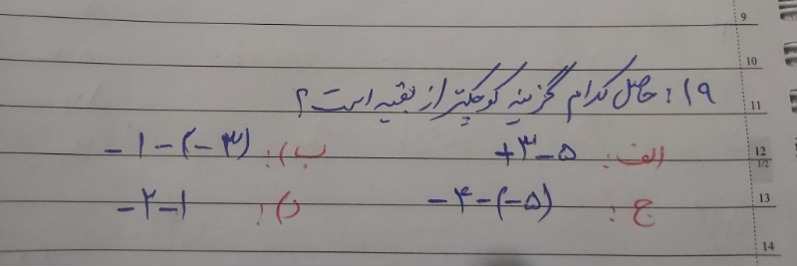 9
10
۱۹: حاصل کدام گزینه کوچکتر از بقیه است؟
11
الف: +۳-۵ ب): -۱-(-۳)
12
1/2
ج: -۴-(-۵) د): -۲-۱
13
14